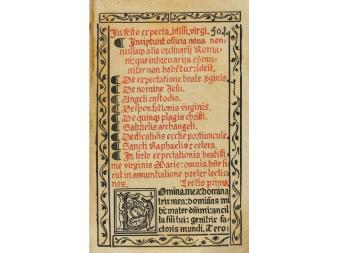 In festo expecta. btissi. virgi. fo. j.
¶ Incipiunt officia noua non
nullaq; alia ordinarij Roma
ni: que in breuiarijs cōmu
niter non habētur: idest.
¶ De expectatione beate virginis.
¶ De nomine Jesu.
¶ Angeli custodis.
¶ Desponsationis virginis.
¶ De quinq; plagis christi.
¶ Gabrielis archangeli.
¶ Dedicatiōis ecctie portiuncule.
¶ Sancti Raphaelis: z cetera.
¶ In festo expectationis beatissi
me virginis Marie: omnia dicūtur
sicut in annuntiatione preter lectio
nes. Lectio prima
Domina mea: domina
trix mea: dominās mi
bi: mater dñi mi: ancil
la filij tui: genitrix fa
ctoris mundi. Te ro-